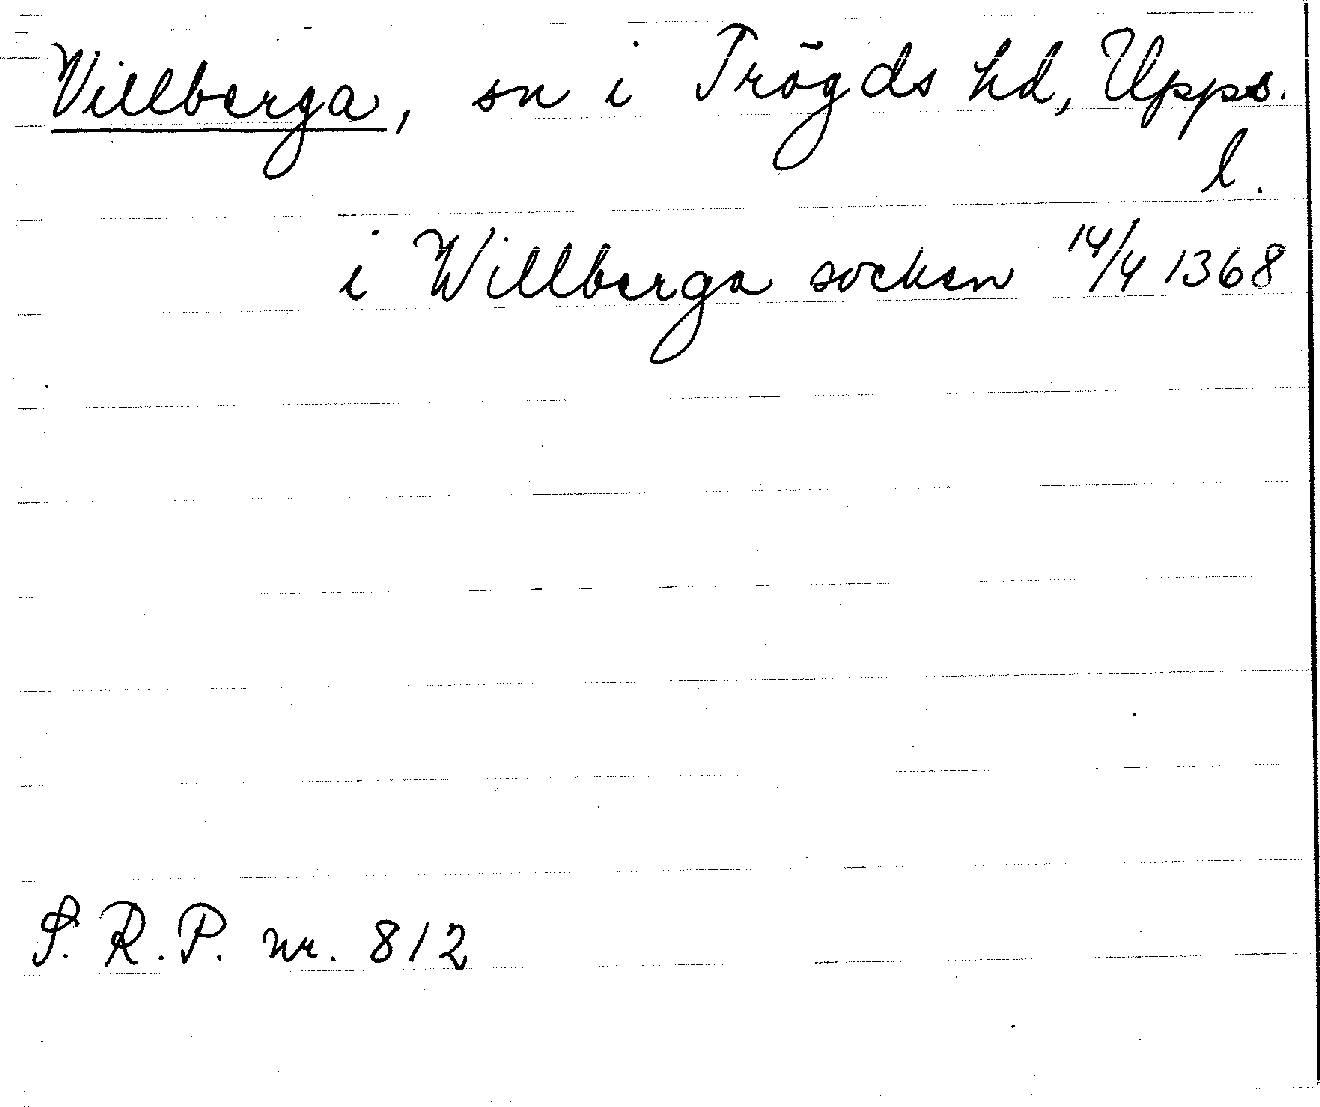 Villberga, sn i Trögds hd, Upps.
l.
i Willberga socken 14/4 1368
S. R. P. nr. 812